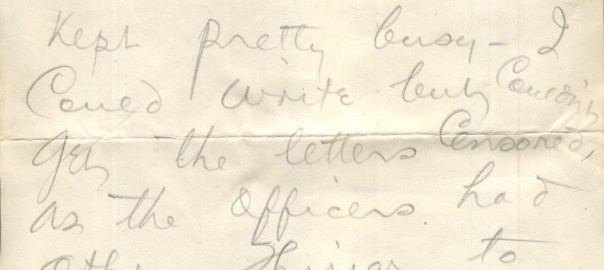 Kept pretty busy - I
Could write but Couldn't
get the letters Censored,
as the officers had
other things to